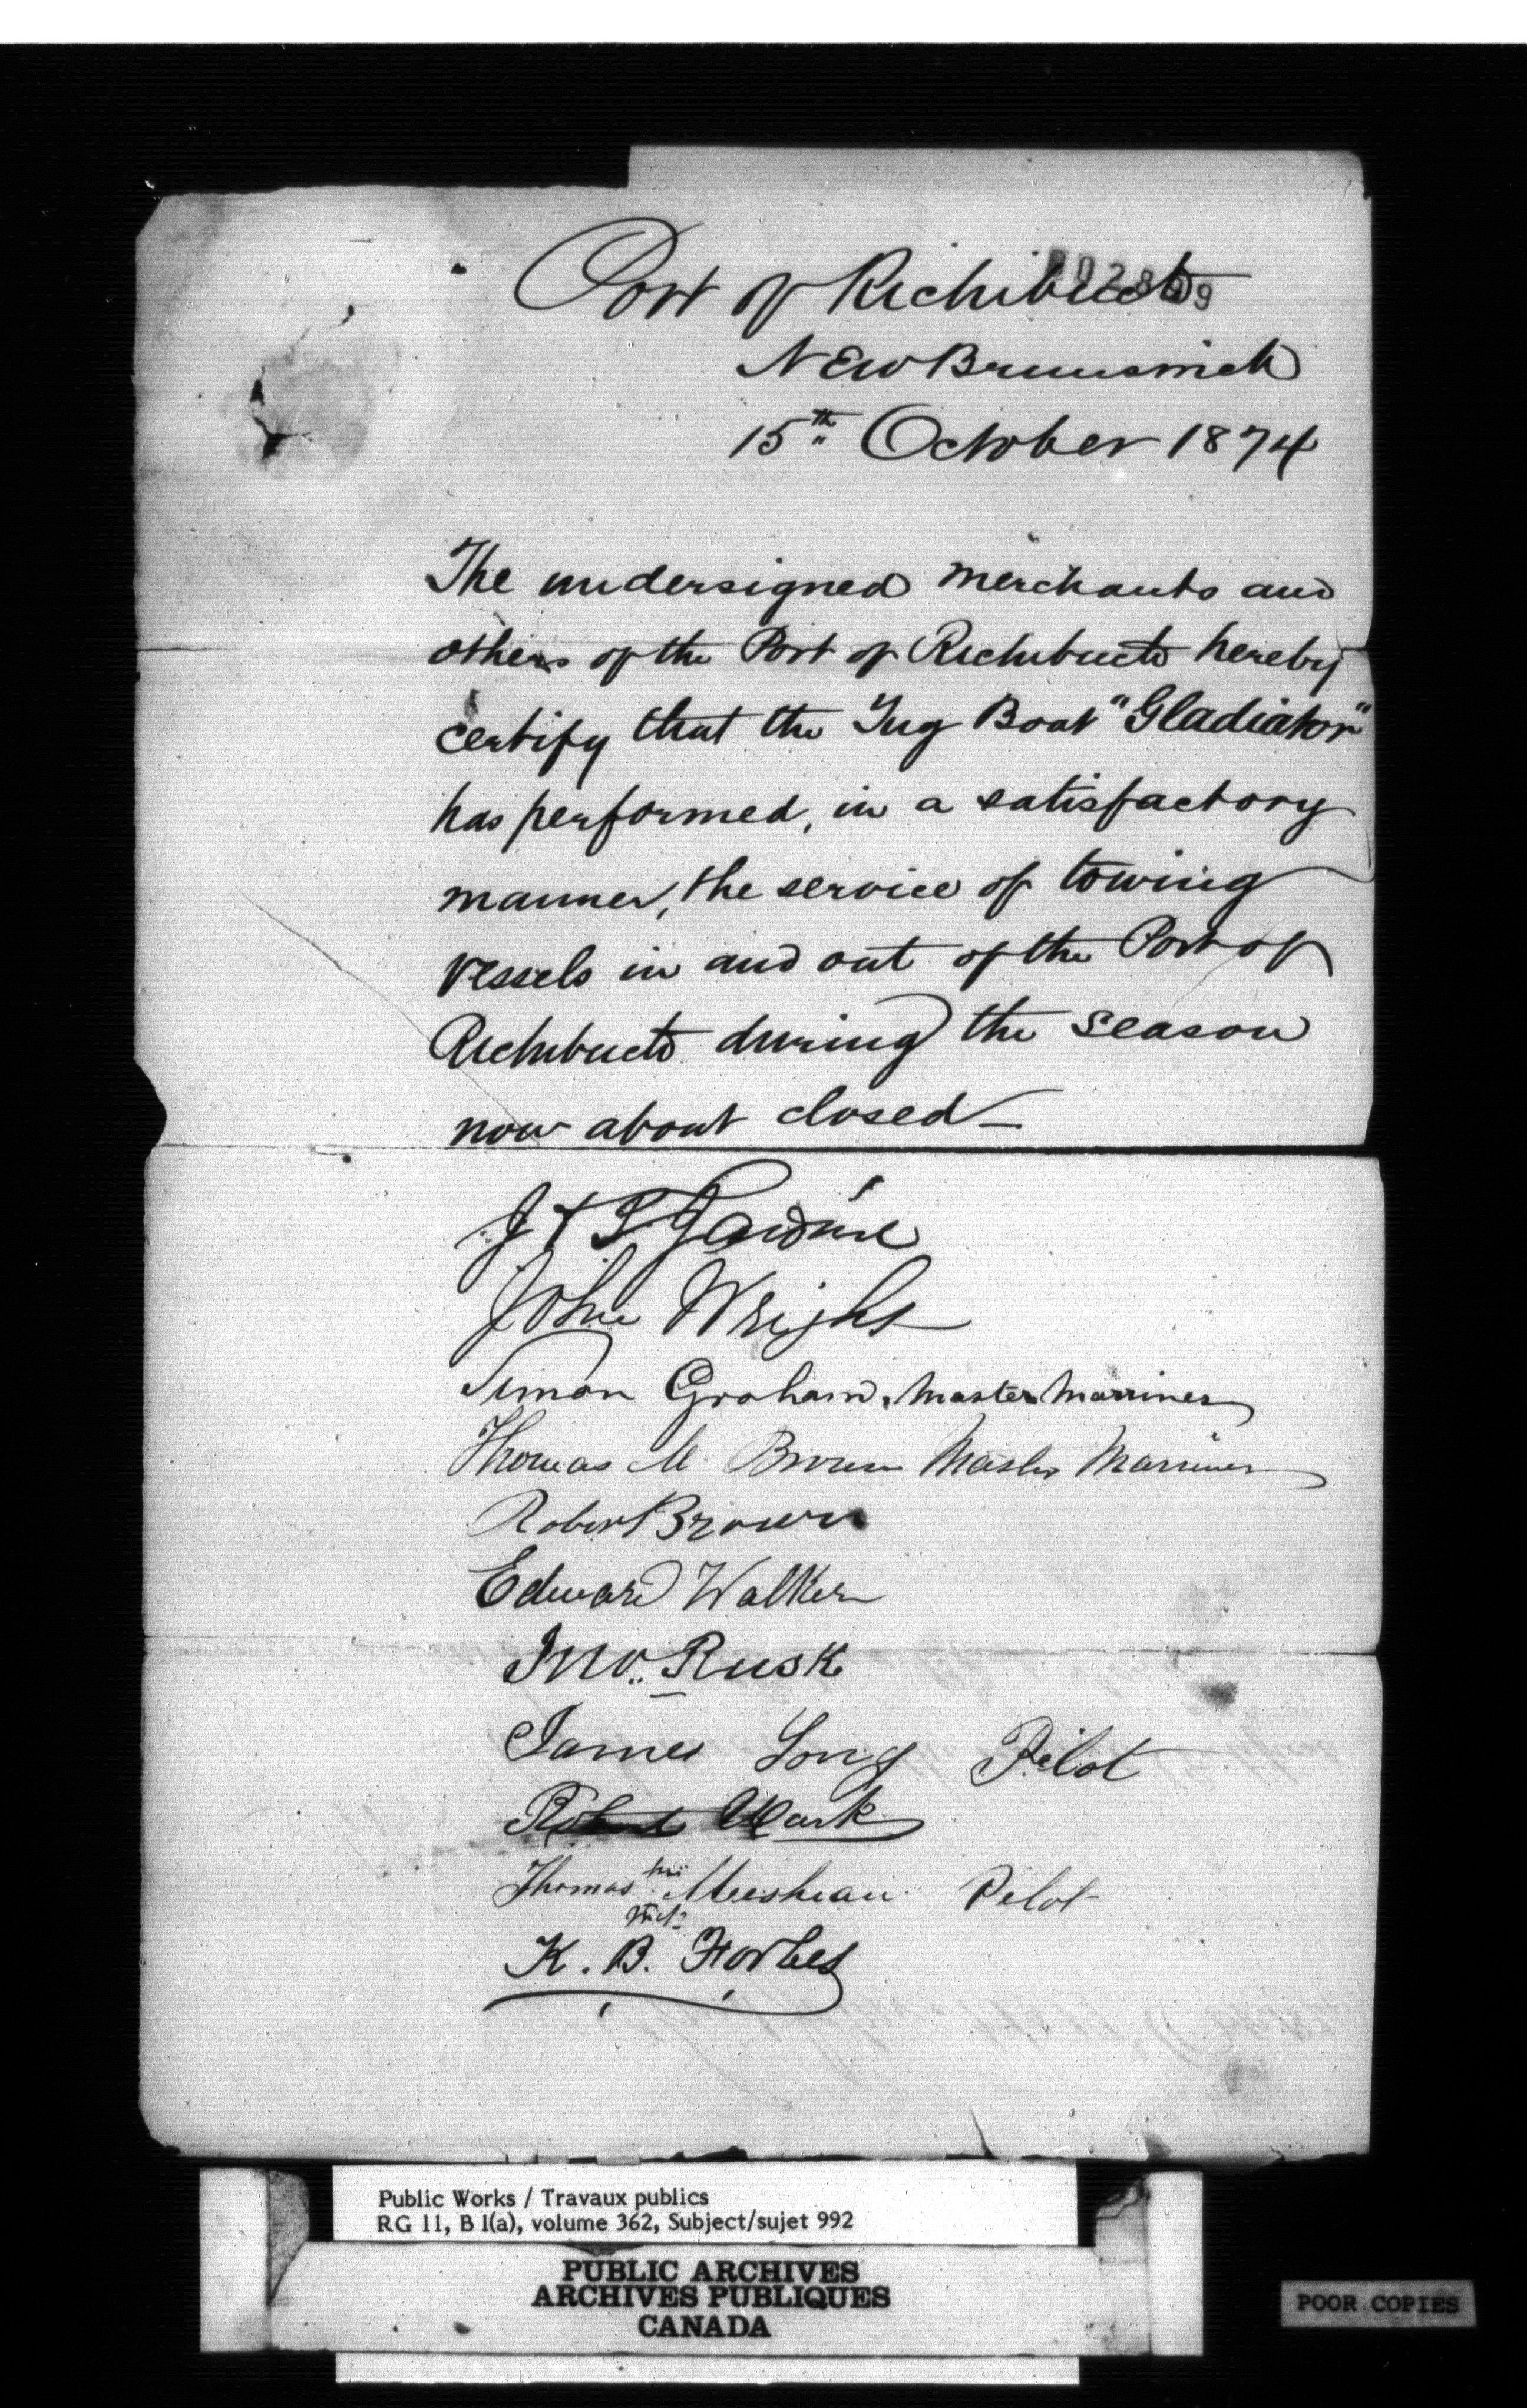 Port of Richibucto
NEW Brunswick
15th October 1874
The undersigned merchants and
others of the Port of Richibucto hereby
certify that the Tug Boat "Gladiator"
has performed, in a satisfactory
manner, the service of towing
vessels in and out of the Port of
Richibucto during the season
now about closed —
J & T Jardine
John Wright
Simon Graham, Master Marriner
Thomas M Brown Master Marriner
Robert Brown
Edward Walker
Jno. Rusk
James Long Pilot
Robert Clark
Thomas his Meeshean Pilot
K. B. Forbes
Public Works / Travaux publics
RG 11, B 1(a), volume 362, Subject/sujet 992
PUBLIC ARCHIVES
ARCHIVES PUBLIQUES
CANADA
POOR COPIES